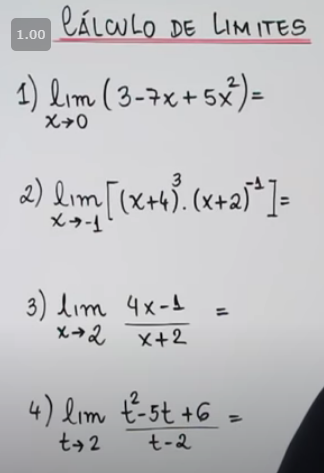 1.00
CÁLCULO DE LIMITES
1) lim x→0 (3-7x+5x²)=
2) lim x→-1 [(x+4)³.(x+2)⁻¹]=
3) lim x→2 4x-1/x+2 =
4) lim t→2 t²-5t+6/t-2 =